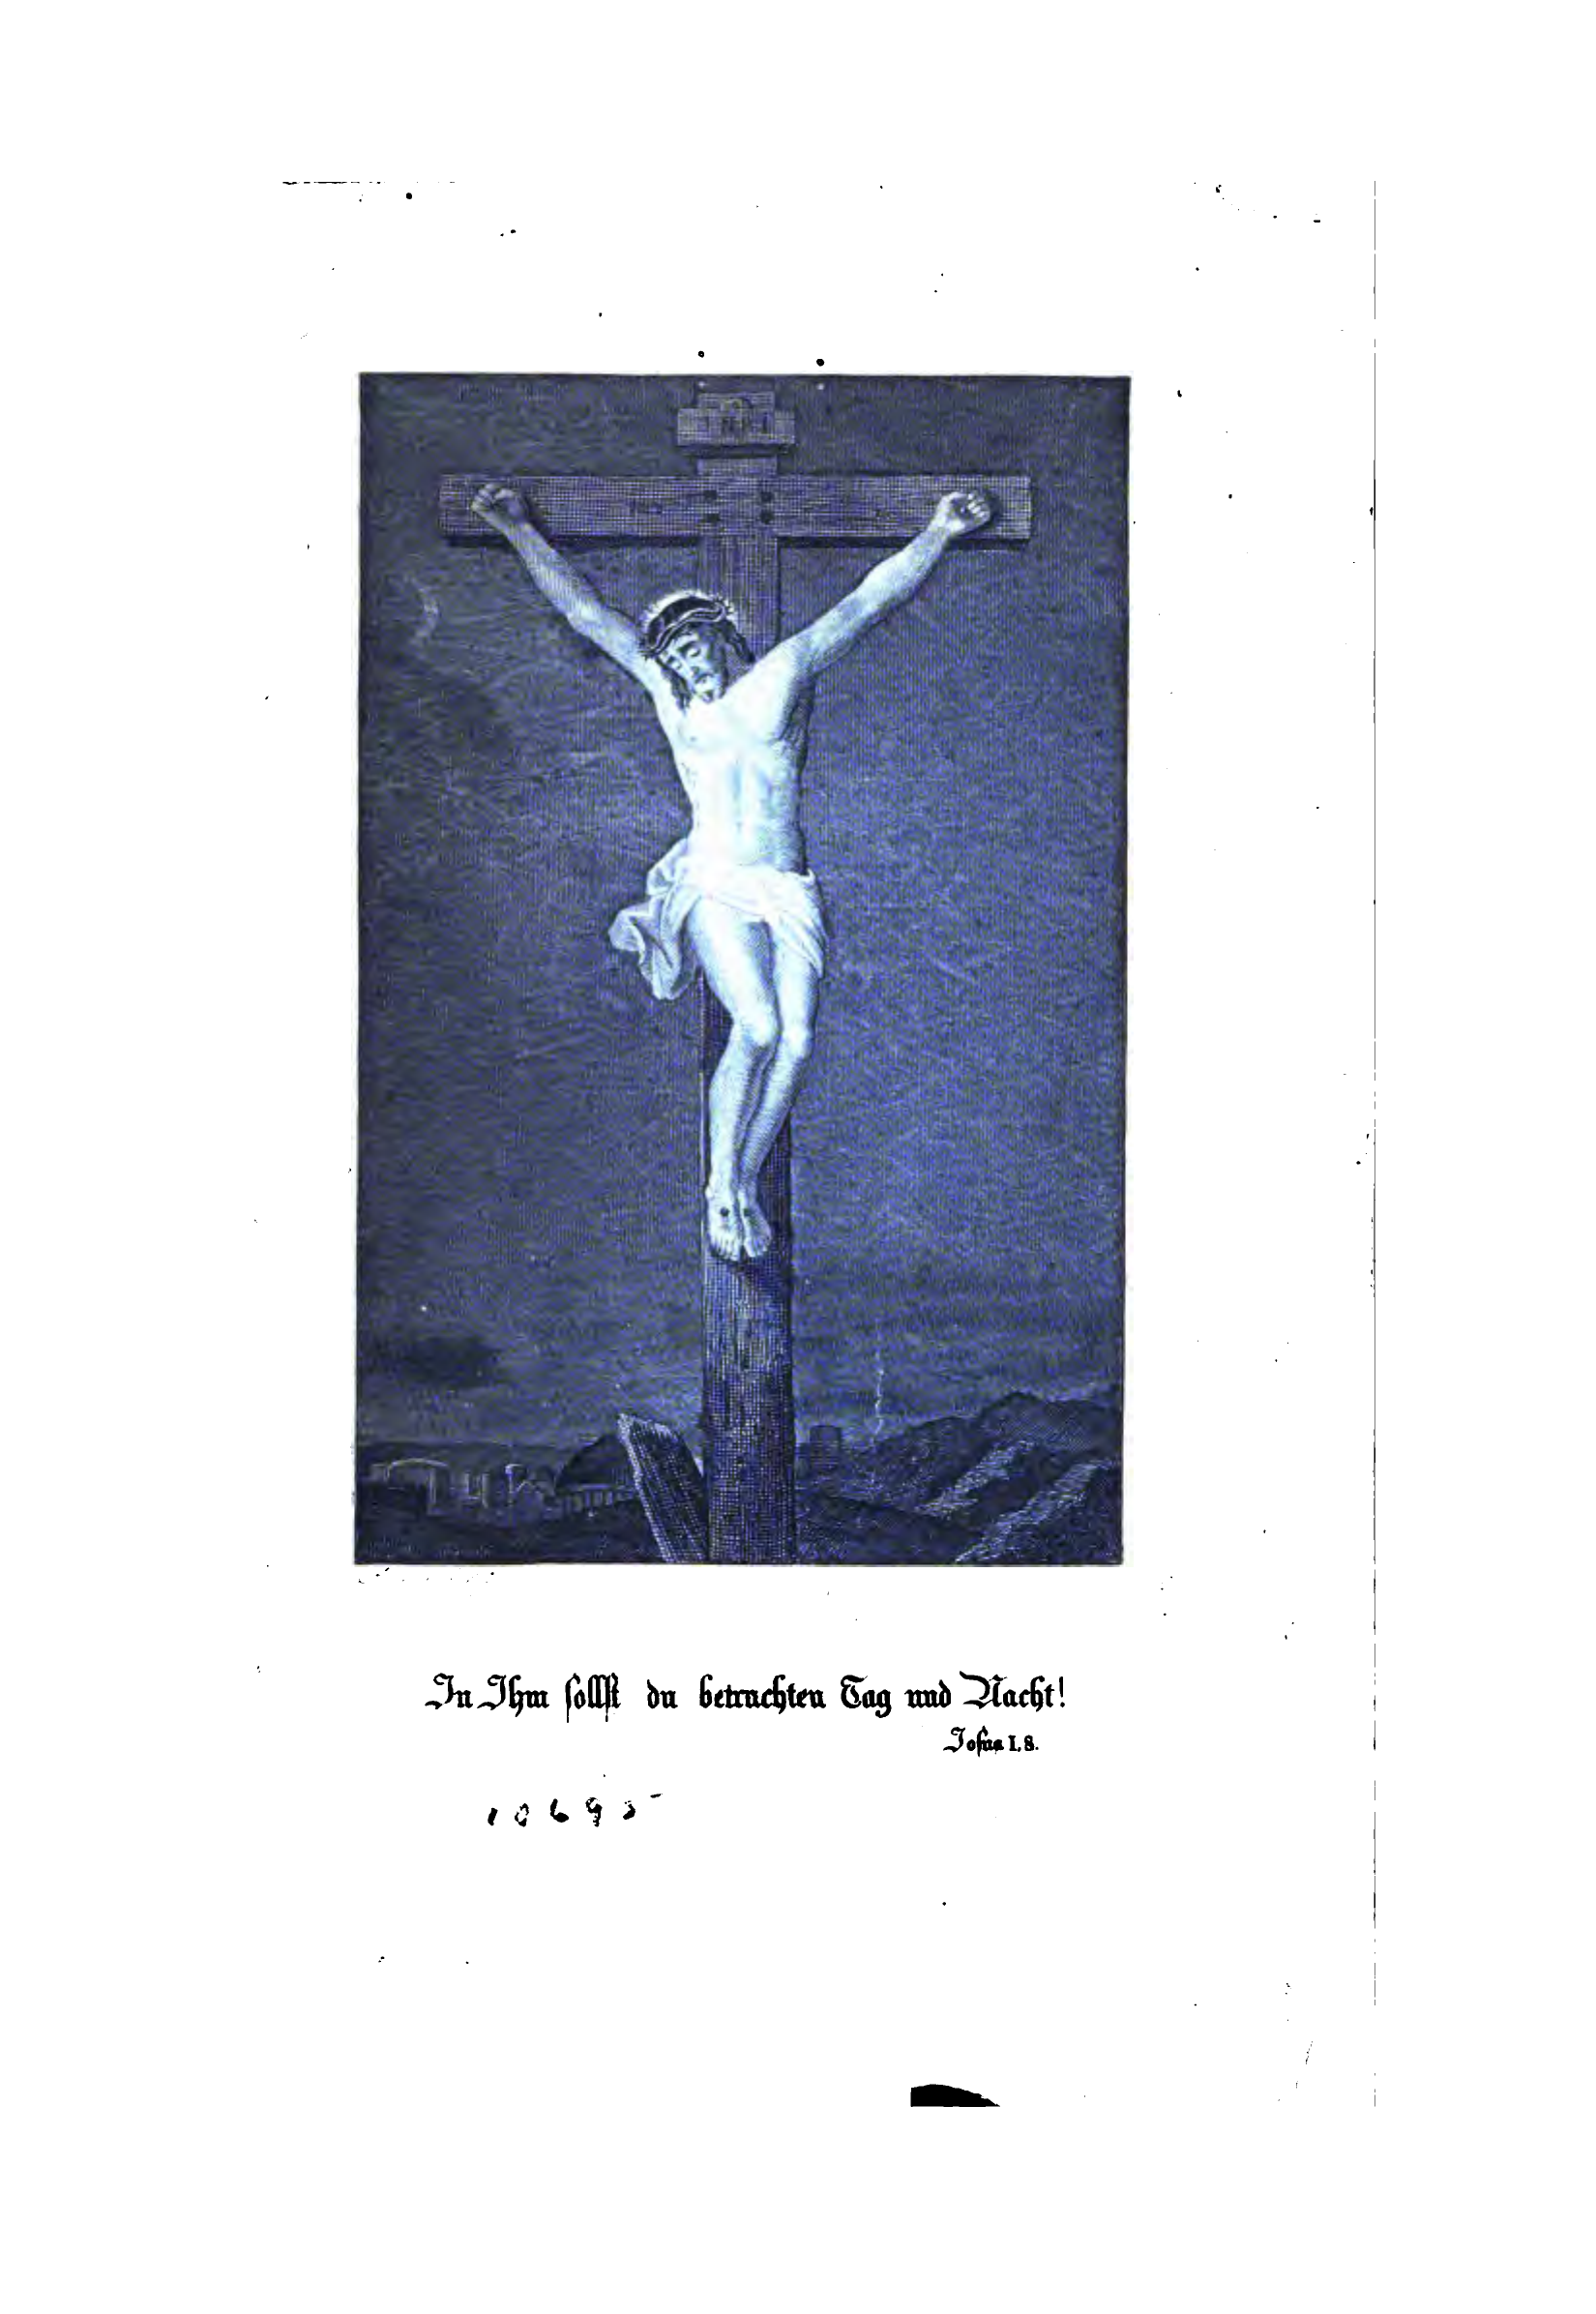 INRI
In Ihm sollst du betrachten Tag und Nacht!
Josua I, 8.
10695